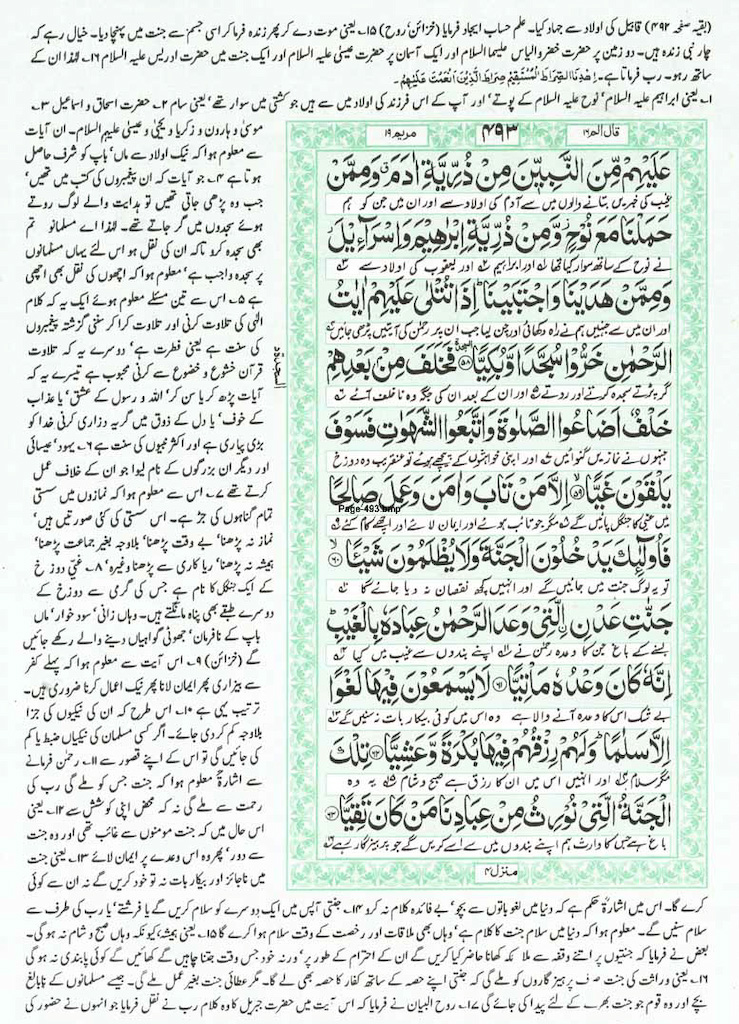 (بقیہ صفحہ ۴۹۲) قابیل کی اولاد سے جہاد کیا۔ علم حساب ایجاد فرمایا (خزائن' روح) ۱۵۔ یعنی موت دے کر پھر زندہ فرما کر اسی جسم سے جنت میں پہنچا دیا۔ خیال رہے کہ
چار نبی زندہ ہیں۔ دو زمین پر حضرت خضر و الیاس علیہما السلام اور ایک آسمان پر حضرت عیسٰی علیہ السلام اور ایک جنت میں حضرت ادریس علیہ السلام ۱۶۔ لہٰذا ان کے
ساتھ رہو۔ رب فرماتا ہے۔ اِهْدِنَا الصِّرَاطَ الْمُسْتَقِيْمَ صِرَاطَ الَّذِيْنَ اَنْعَمْتَ عَلَيْهِمْ
۱۔ یعنی ابراہیم علیہ السلام' نوح علیہ السلام کے پوتے' اور آپ کے اس فرزند کی اولاد میں سے ہیں جو کشتی میں سوار تھے' یعنی سام ۲۔ حضرت اسحاق و اسماعیل ۳۔
قال الم ۱۶
۴۹۳
مریم ۱۹
عَلَيْهِمْ مِّنَ النَّبِيّٖنَ مِنْ ذُرِّيَّةِ اٰدَمَ ۗ وَمِمَّنْ
غیب کی خبریں بتانے والوں میں سے آدم کی اولاد سے اور ان میں جن کو ہم
حَمَلْنَا مَعَ نُوْحٍ ۫ وَّمِنْ ذُرِّيَّةِ اِبْرٰهِيْمَ وَاِسْرَآءِيْلَ ۫
نے نوح کے ساتھ سوار کیا تھا اور ابراہیم اور یعقوب کی اولاد سے
وَمِمَّنْ هَدَيْنَا وَاجْتَبَيْنَا ۭ اِذَا تُتْلٰى عَلَيْهِمْ اٰيٰتُ
اور ان میں سے جنہیں ہم نے راہ دکھائی اور چن لیا جب ان پر رحمٰن کی آیتیں پڑھی جاتیں
الرَّحْمٰنِ خَرُّوْا سُجَّدًا وَّبُكِيًّا ۵۸ فَخَلَفَ مِنْۢ بَعْدِهِمْ
گر پڑتے سجدہ کرتے اور روتے تو ان کے بعد ان کی جگہ وہ ناخلف آئے
السجدة
خَلْفٌ اَضَاعُوا الصَّلٰوةَ وَاتَّبَعُوا الشَّهَوٰتِ فَسَوْفَ
جنہوں نے نمازیں گنوائیں اور اپنی خواہشوں کے پیچھے ہوئے تو عنقریب وہ دوزخ
يَلْقَوْنَ غَيًّا ۵۹ اِلَّا مَنْ تَابَ وَاٰمَنَ وَعَمِلَ صَالِحًا
Page-493.bmp
میں غی کا جنگل پائیں گے مگر جو تائب ہوئے اور ایمان لائے اور اچھے کام کئے
فَاُولٰٓئِكَ يَدْخُلُوْنَ الْجَنَّةَ وَلَا يُظْلَمُوْنَ شَيْـًٔا ۶۰
تو یہ لوگ جنت میں جائیں گے اور انہیں کچھ نقصان نہ دیا جائے گا
جَنّٰتِ عَدْنِ ۨ الَّتِيْ وَعَدَ الرَّحْمٰنُ عِبَادَهٗ بِالْغَيْبِ ۭ
بسنے کے باغ جن کا وعدہ رحمٰن نے اپنے بندوں سے غیب میں کیا
اِنَّهٗ كَانَ وَعْدُهٗ مَاْتِيًّا ۶۱ لَا يَسْمَعُوْنَ فِيْهَا لَغْوًا
بے شک اس کا وعدہ آنے والا ہے وہ اس میں کوئی بیکار بات نہ سنیں گے
اِلَّا سَلٰمًا ۭ وَلَهُمْ رِزْقُهُمْ فِيْهَا بُكْرَةً وَّعَشِيًّا ۶۲ تِلْكَ
مگر سلام اور انہیں اس میں ان کا رزق ہے صبح و شام یہ وہ
الْجَنَّةُ الَّتِيْ نُوْرِثُ مِنْ عِبَادِنَا مَنْ كَانَ تَقِيًّا ۶۳
باغ ہے جس کا وارث ہم اپنے بندوں میں سے اسے کریں گے جو پرہیزگار ہے
منزل ۴
موسٰی و ہارون و زکریا و یحیٰی و عیسٰی علیہم السلام۔ ان آیات
سے معلوم ہوا کہ نیک اولاد سے ماں' باپ کو شرف حاصل
ہوتا ہے ۴۔ جو آیات کہ ان پیغمبروں کی کتب میں تھیں'
جب وہ پڑھی جاتی تھیں تو ہدایت والے لوگ روتے
ہوئے سجدوں میں گر جاتے تھے۔ لہٰذا اے مسلمانو تم
بھی سجدہ کرو تاکہ ان کی نقل ہو اس لئے یہاں مسلمانوں
پر سجدہ واجب ہے' معلوم ہوا کہ اچھوں کی نقل بھی اچھی
ہے ۵۔ اس سے تین مسئلے معلوم ہوئے ایک یہ کہ کلام
الٰہی کی تلاوت کرنی اور تلاوت کرا کر سننی گزشتہ پیغمبروں
کی سنت ہے یعنی فطرت ہے' دوسرے یہ کہ تلاوت
قرآن خشوع و خضوع سے کرنی محبوب ہے تیسرے یہ کہ
آیات پڑھ کر یا سن کر' اللہ و رسول کے عشق' یا عذاب
کے خوف' یا دل کے ذوق میں گریہ و زاری کرنی خدا کو
بڑی پیاری ہے اور اکثر نبیوں کی سنت ہے ۶۔ یہود' عیسائی
اور دیگر ان بزرگوں کے نام لیوا جو ان کے خلاف عمل
کرتے تھے ۷۔ اس سے معلوم ہوا کہ نمازوں میں سستی
تمام گناہوں کی جڑ ہے۔ اس سستی کی کئی صورتیں ہیں'
نماز نہ پڑھنا' بے وقت پڑھنا' بلاوجہ بغیر جماعت پڑھنا'
ہمیشہ نہ پڑھنا' ریا کاری سے پڑھنا وغیرہ' ۸۔ غیّ دوزخ
کے ایک جنگل کا نام ہے جس کی گرمی سے دوزخ کے
دوسرے طبقے بھی پناہ مانگتے ہیں۔ وہاں زانی' سود خوار' ماں
باپ کے نافرمان' جھوٹی گواہیاں دینے والے رکھے جائیں
گے (خزائن) ۹۔ اس آیت سے معلوم ہوا کہ پہلے کفر
سے بیزاری پھر ایمان لانا پھر نیک اعمال کرنا ضروری ہیں۔
ترتیب یہی ہے ۱۰۔ اس طرح کہ ان کی نیکیوں کی جزا
بلاوجہ کم کر دی جائے۔ اگر کسی مسلمان کی نیکیاں ضبط یا کم
کی جائیں گی تو اس کے اپنے قصور سے ۱۱۔ رحمٰن فرمانے
سے اشارۃً معلوم ہوا کہ جنت جس کو ملے گی رب کی
رحمت سے ملے گی نہ کہ محض اپنی کوشش سے ۱۲۔ یعنی
اس حال میں کہ جنت مومنوں سے غائب تھی اور وہ جنت
سے دور' پھر وہ اس وعدے پر ایمان لائے ۱۳۔ یعنی جنت
میں ناجائز اور بیکار بات نہ تو خود کریں گے نہ ان سے کوئی
کرے گا۔ اس میں اشارۃً حکم ہے کہ دنیا میں لغو باتوں سے بچو' بے فائدہ کلام نہ کرو ۱۴۔ جنتی آپس میں ایک دوسرے کو سلام کریں گے یا فرشتے' یا رب کی طرف سے
سلام سنیں گے۔ معلوم ہوا کہ دنیا میں سلام جنت کا کلام ہے' وہاں بھی ملاقات اور رخصت کے وقت سلام ہوا کرے گا ۱۵۔ یعنی ہمیشہ کیونکہ وہاں صبح و شام نہ ہو گی۔
بعض نے فرمایا کہ جنتیوں پر اتنے وقفہ سے ملائکہ کھانا حاضر کیا کریں گے ان کے احترام کے طور پر' ورنہ خود جس وقت جتنا چاہیں گے کھائیں گے کوئی پابندی نہ ہو گی
۱۶۔ یعنی وراثت کی جنت صرف پرہیزگاروں کو ملے گی کہ جنتی اپنے حصہ کے ساتھ کفار کا حصہ بھی لے گا۔ مگر عطائی جنت بغیر عمل ملے گی۔ جیسے مسلمانوں کے نابالغ
بچے اور وہ قوم جو جنت بھرنے کے لئے پیدا کی جائے گی ۱۷۔ روح البیان نے فرمایا کہ اس آیت میں حضرت جبریل کا وہ کلام رب نے نقل فرمایا جو انہوں نے حضور کی